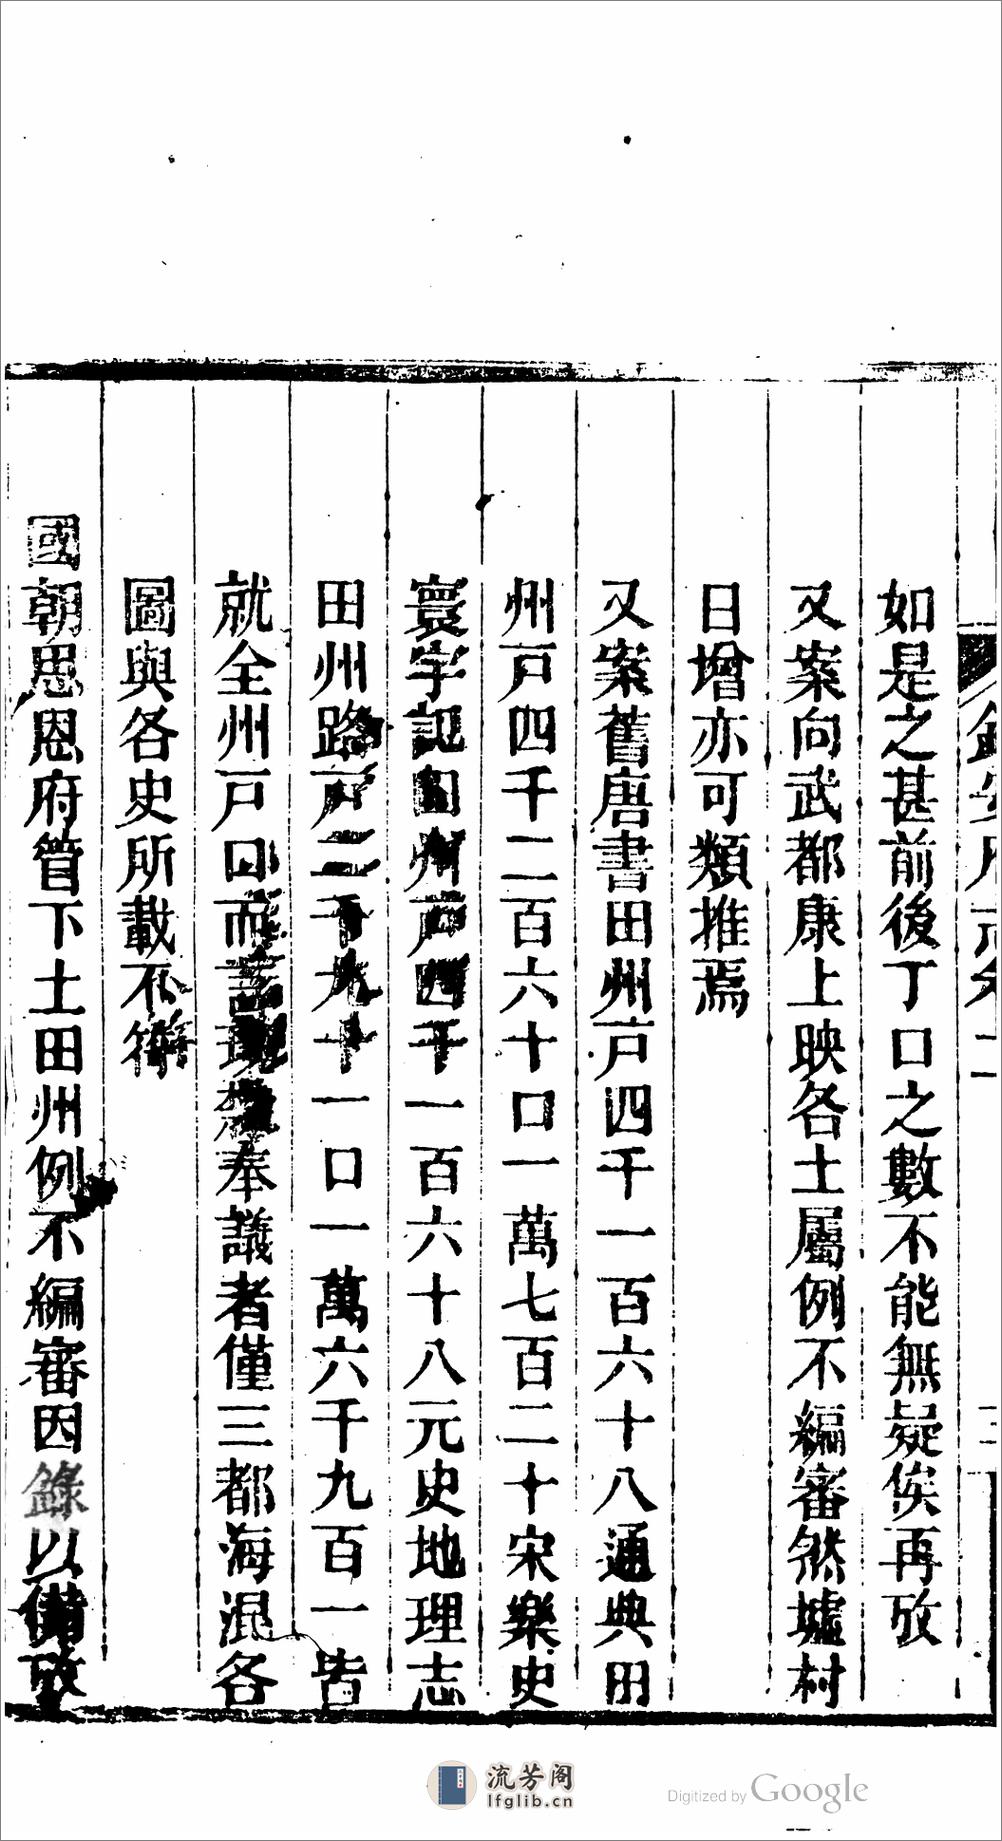 如是之甚前後丁口之數不能無疑俟再攷
又案向武都康上映各土屬例不編審然墟村
日增亦可類推焉
又案舊唐書田州戸四千一百六十八通典田
州戸四千二百六十口一萬七百二十宋樂史
寰宇記田州戸四千一百六十八元史地理志
田州路戸二千九十一口一萬六千九百一皆
就全州戸口而言現歸奉議者僅三都海混各
圖與各史所載不符
國朝思恩府管下土田州例不編審因錄以備攷
流芳阁
lfglib.cn
Digitized by Google